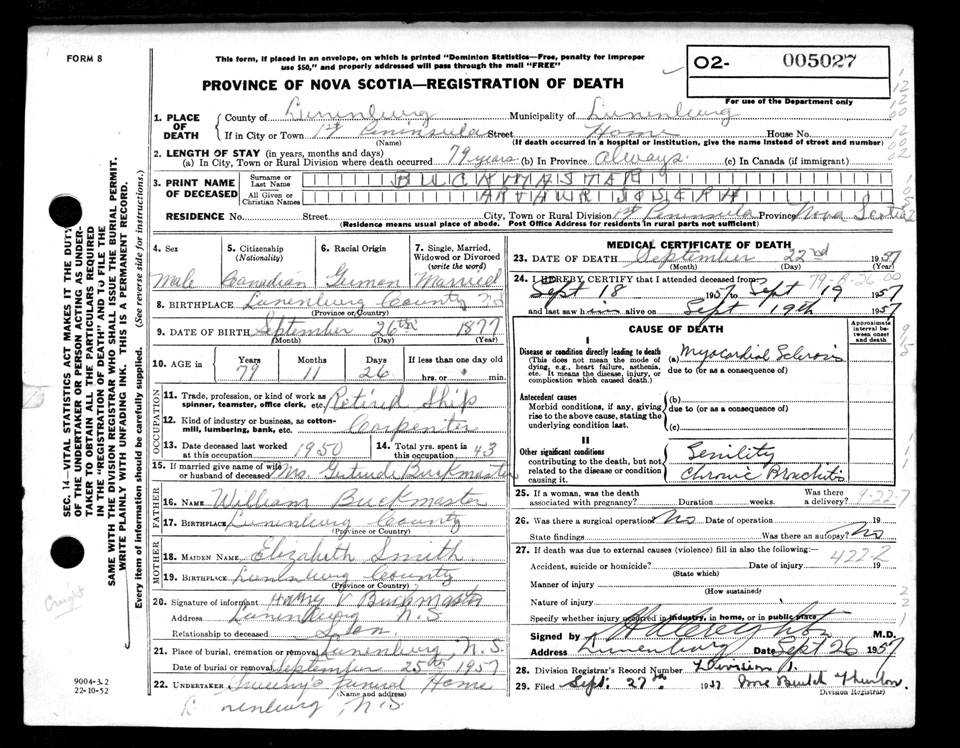 FORM 8
This form, if placed in an envelope, on which is printed "Dominion Statistics—Free, penalty for improper
use $50," and properly addressed will pass through the mail "FREE"
PROVINCE OF NOVA SCOTIA—REGISTRATION OF DEATH
O2- 005027
For use of the Department only
1. PLACE OF DEATH
County of Lunenburg Municipality of Lunenburg
If in City or Town 1st Peninsula Street Home House No.
(Name) (If death occurred in a hospital or institution, give the name instead of street and number)
2. LENGTH OF STAY (in years, months and days)
(a) In City, Town or Rural Division where death occurred 79 years (b) In Province always. (c) In Canada (if immigrant)
3. PRINT NAME OF DECEASED
Surname or Last Name BUCKMASTER
All Given or Christian Names ARTHUR JOSEPH
RESIDENCE No. Street City, Town or Rural Division 1st Peninsula Province Nova Scotia
(Residence means usual place of abode. Post Office Address for residents in rural parts not sufficient)
4. Sex Male
5. Citizenship (Nationality) Canadian
6. Racial Origin German
7. Single, Married, Widowed or Divorced (write the word) Married
8. BIRTHPLACE Lunenburg County NS
(Province or Country)
9. DATE OF BIRTH September 26th 1877
(Month) (Day) (Year)
10. AGE in Years 79 Months 11 Days 26 If less than one day old hrs. or min.
OCCUPATION
11. Trade, profession, or kind of work as spinner, teamster, office clerk, etc. Retired Ship
12. Kind of industry or business, as cotton-mill, lumbering, bank, etc. Carpenter
13. Date deceased last worked at this occupation 1950
14. Total yrs. spent in this occupation 43
15. If married give name of wife or husband of deceased Mrs. Gertrude Buckmaster
FATHER
16. NAME William Buckmaster
17. BIRTHPLACE Lunenburg County
(Province or Country)
MOTHER
18. MAIDEN NAME Elizabeth Smith
19. BIRTHPLACE Lunenburg County
(Province or Country)
20. Signature of informant Harry V Buckmaster
Address Lunenburg N.S
Relationship to deceased Son.
21. Place of burial, cremation or removal Lunenburg, N.S.
Date of burial or removal September 25th 1957
22. UNDERTAKER Sweeny's Funeral Home
(Name and address)
Lunenburg, N.S.
MEDICAL CERTIFICATE OF DEATH
23. DATE OF DEATH September 22nd 1957
(Month) (Day) (Year)
79-B-26 00
24. I HEREBY CERTIFY that I attended deceased from
Sept 18 1957 to Sept 19 1957
and last saw him alive on Sept 19th 1957
CAUSE OF DEATH
Approximate interval between onset and death
I
Disease or condition directly leading to death
(This does not mean the mode of dying, e.g., heart failure, asthenia, etc. It means the disease, injury, or complication which caused death.)
(a) Myocardial Sclerosis
due to (or as a consequence of)
Antecedent causes
Morbid conditions, if any, giving rise to the above cause, stating the underlying condition last.
(b)
due to (or as a consequence of)
(c)
II
Other significant conditions
contributing to the death, but not related to the disease or condition causing it.
Senility
Chronic Bronchitis
25. If a woman, was the death associated with pregnancy? Duration weeks. Was there a delivery?
9-22-7
26. Was there a surgical operation? No Date of operation 19
State findings Was there an autopsy? No
27. If death was due to external causes (violence) fill in also the following:—
422-2
Accident, suicide or homicide? Date of injury 19
(State which)
Manner of injury
(How sustained)
Nature of injury
Specify whether injury occurred in industry, in home, or in public place
Signed by M.D.
Address Lunenburg Date Sept 26 1957
28. Division Registrar's Record Number Division 1.
29. Filed Sept. 27th 1957
Division Registrar)
SEC. 14—VITAL STATISTICS ACT MAKES IT THE DUTY
OF THE UNDERTAKER OR PERSON ACTING AS UNDER-
TAKER TO OBTAIN ALL THE PARTICULARS REQUIRED
IN THE "REGISTRATION OF DEATH" AND TO FILE THE
SAME WITH THE DIVISION REGISTRAR WHO SHALL ISSUE THE BURIAL PERMIT.
WRITE PLAINLY WITH UNFADING INK. THIS IS A PERMANENT RECORD.
Every item of information should be carefully supplied. (See reverse side for instructions.)
9004-3.2
22-10-52